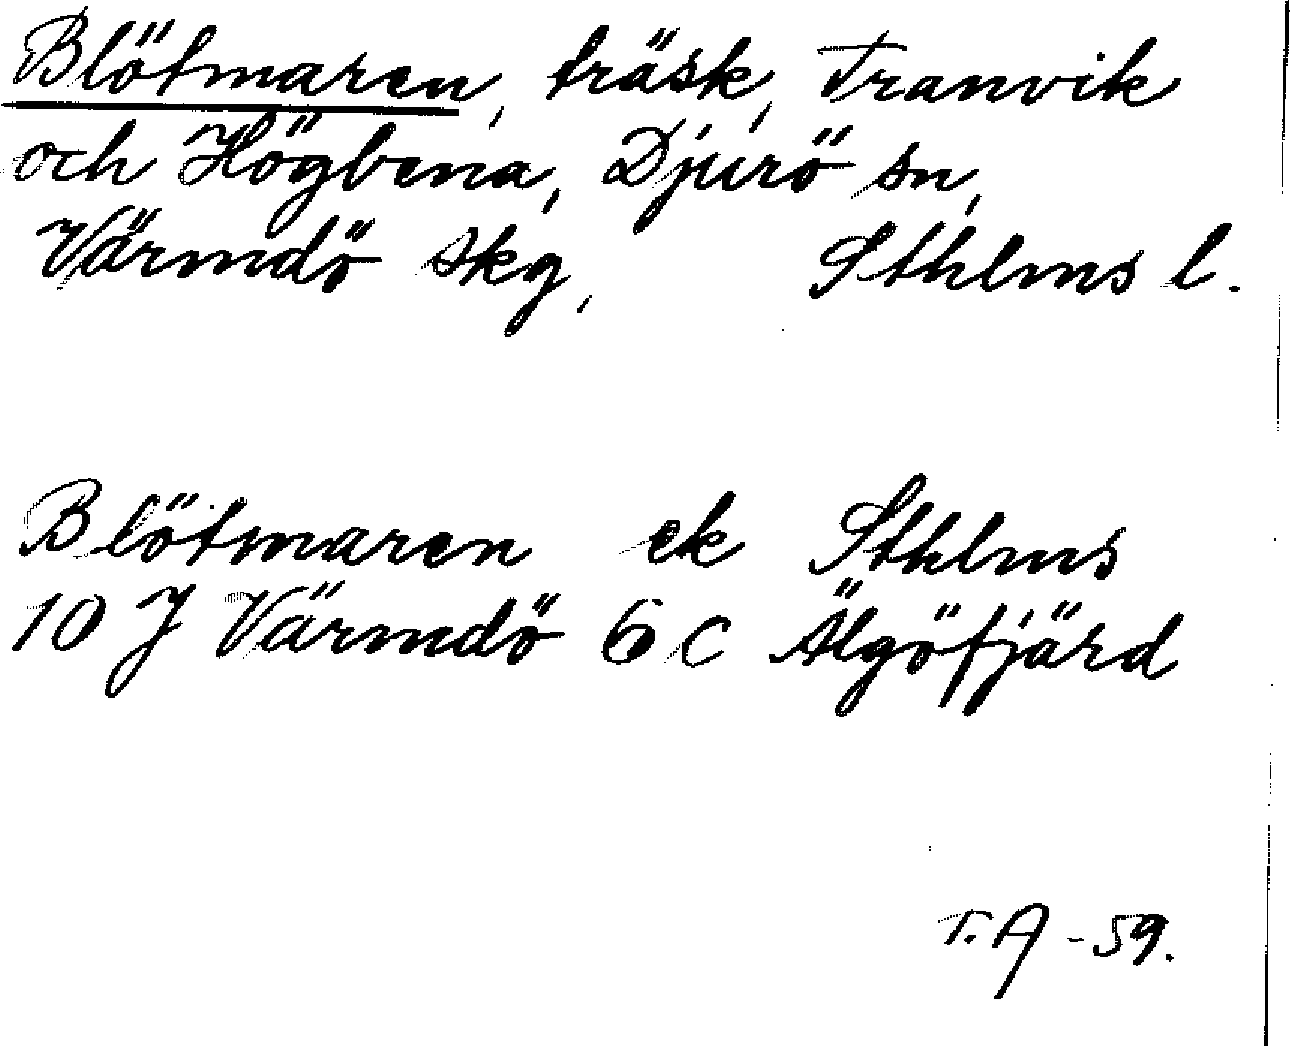 Blötmaren, träsk, Tranvik
och Högbena, Djurö sn,
Värmdö skg, Sthlms l.
Blötmaren ek Sthlms
10 J Värmdö 6 c Älgöfjärd
T. A -59.